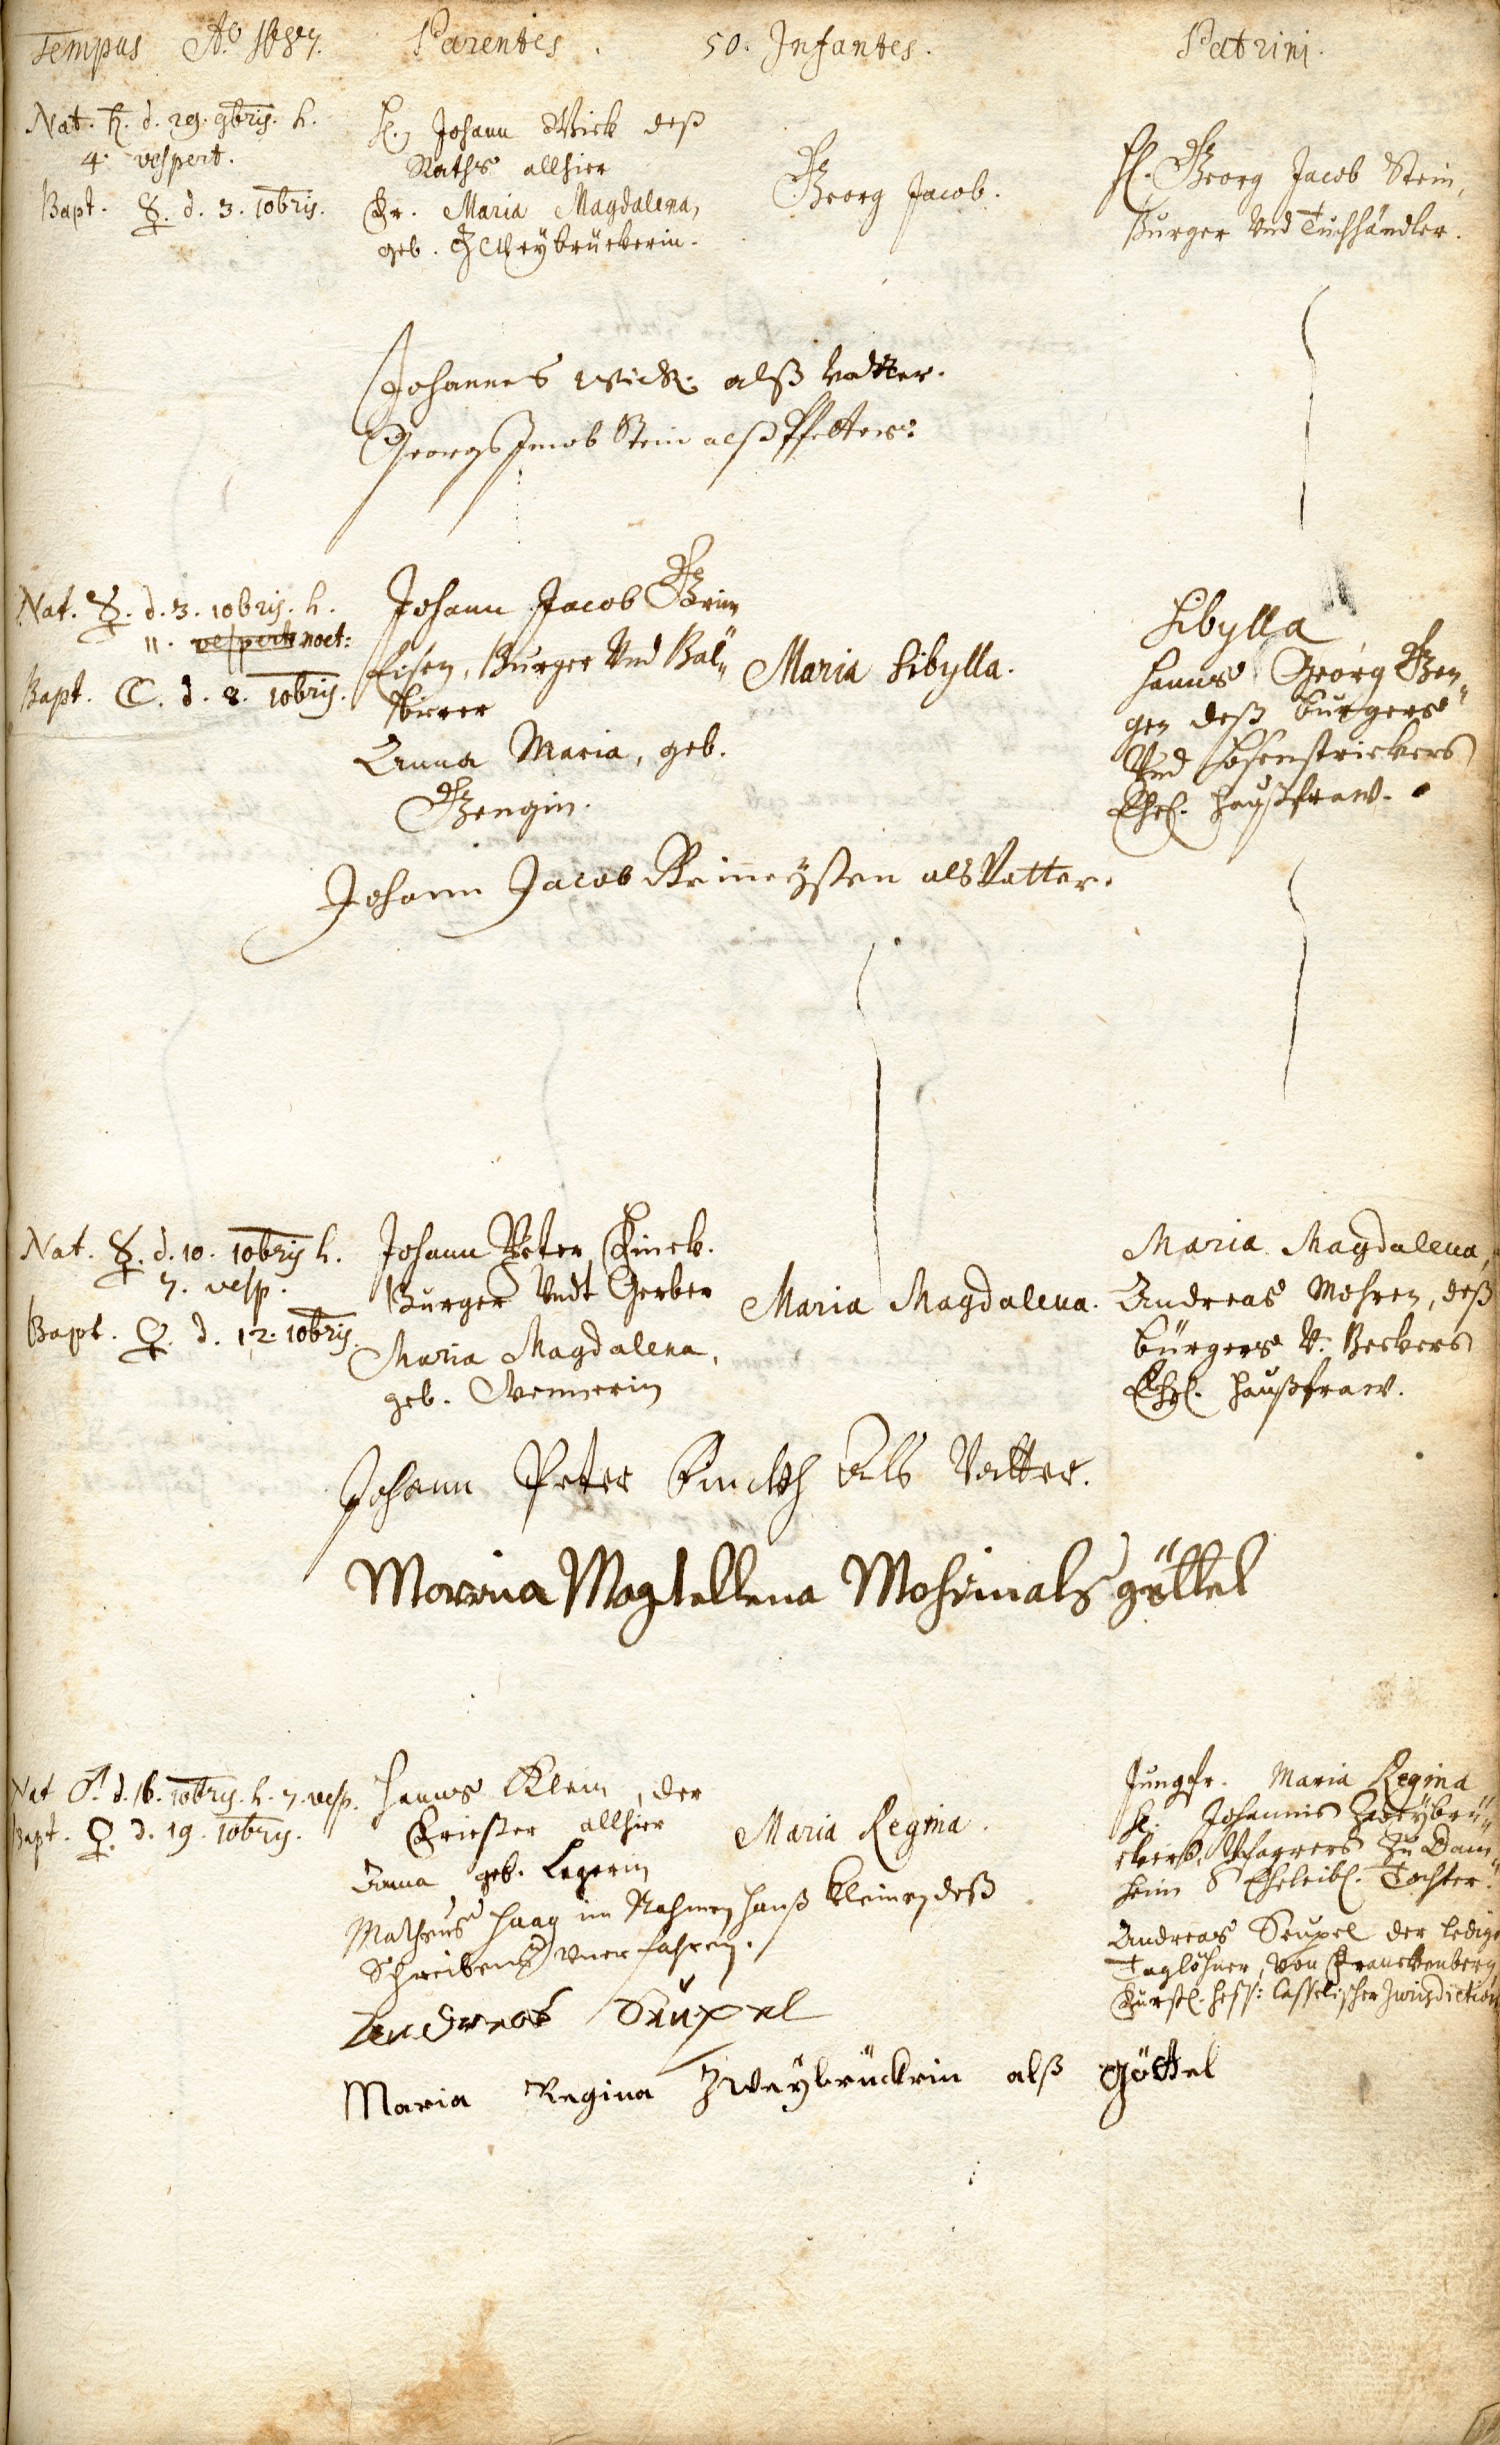 Tempus Aō 1687. Parentes. 50. Infantes. Patrini.
Nat. ♄. d. 29. 9bris. h.
4. vespert.
Bapt. ☿. d. 3. 10bris.
H. Johann Wick deß
Raths allhier
Fr. Maria Magdalena,
geb. Zweybrückerin.
Georg Jacob.
H. Georg Jacob Stein,
Burger Und Tuchhändler.
Johannes Wick alß Vatter.
Georg Jacob Stein alß Pfetter
Nat. ☿. d. 3. 10bris. h.
11. vespert noct:
Bapt. ☾. d. 8. 10bris.
Johann Jacob Grim
Eisen, Burger Und Bal„
birer
Anna Maria, geb.
Gengin.
Maria Sibylla.
Sibylla
Hanns Georg Gen„
gen deß burgers
Und Hosenstrickers
Ehel. Haußfraw.
Johann Jacob als Vatter.
Nat. ☿. d. 10. 10bris h.
7. vesp.
Bapt. ♀. d. 12. 10bris.
Johann Peter Finck.
Burger Undt Gerber
Maria Magdalena,
geb.
Maria Magdalena.
Maria Magdalena,
Andreas Mohren, deß
bürgers V. Beckers
Ehel. Haußfraw.
Johann Peter Finckh Als Vatter.
Marria Magtellena Mohrin als göttel
Nat ♂. d. 16. 10bris. h. 7. vesp.
Bapt. ♀. d. 19. 10bris.
Hanns Klein, der
allhier
Anna geb.
Maria Regina.
Jungfr. Maria Regina
H. Johannis Zweybrü„
ckers, Pfarrers Zu Dam„
heim Eheleibl. Tochter.
Andreas Seupel der ledige
Taglöhner, von Franckenberg
Fürstl. Hess: Casselischer Jurisdiction
Matheus Haag im Nahmen Hanß Kleinen deß
Schreibens Unerfahren.
Andreas Seupel
Maria Regina Zweybrückrin alß Göttel